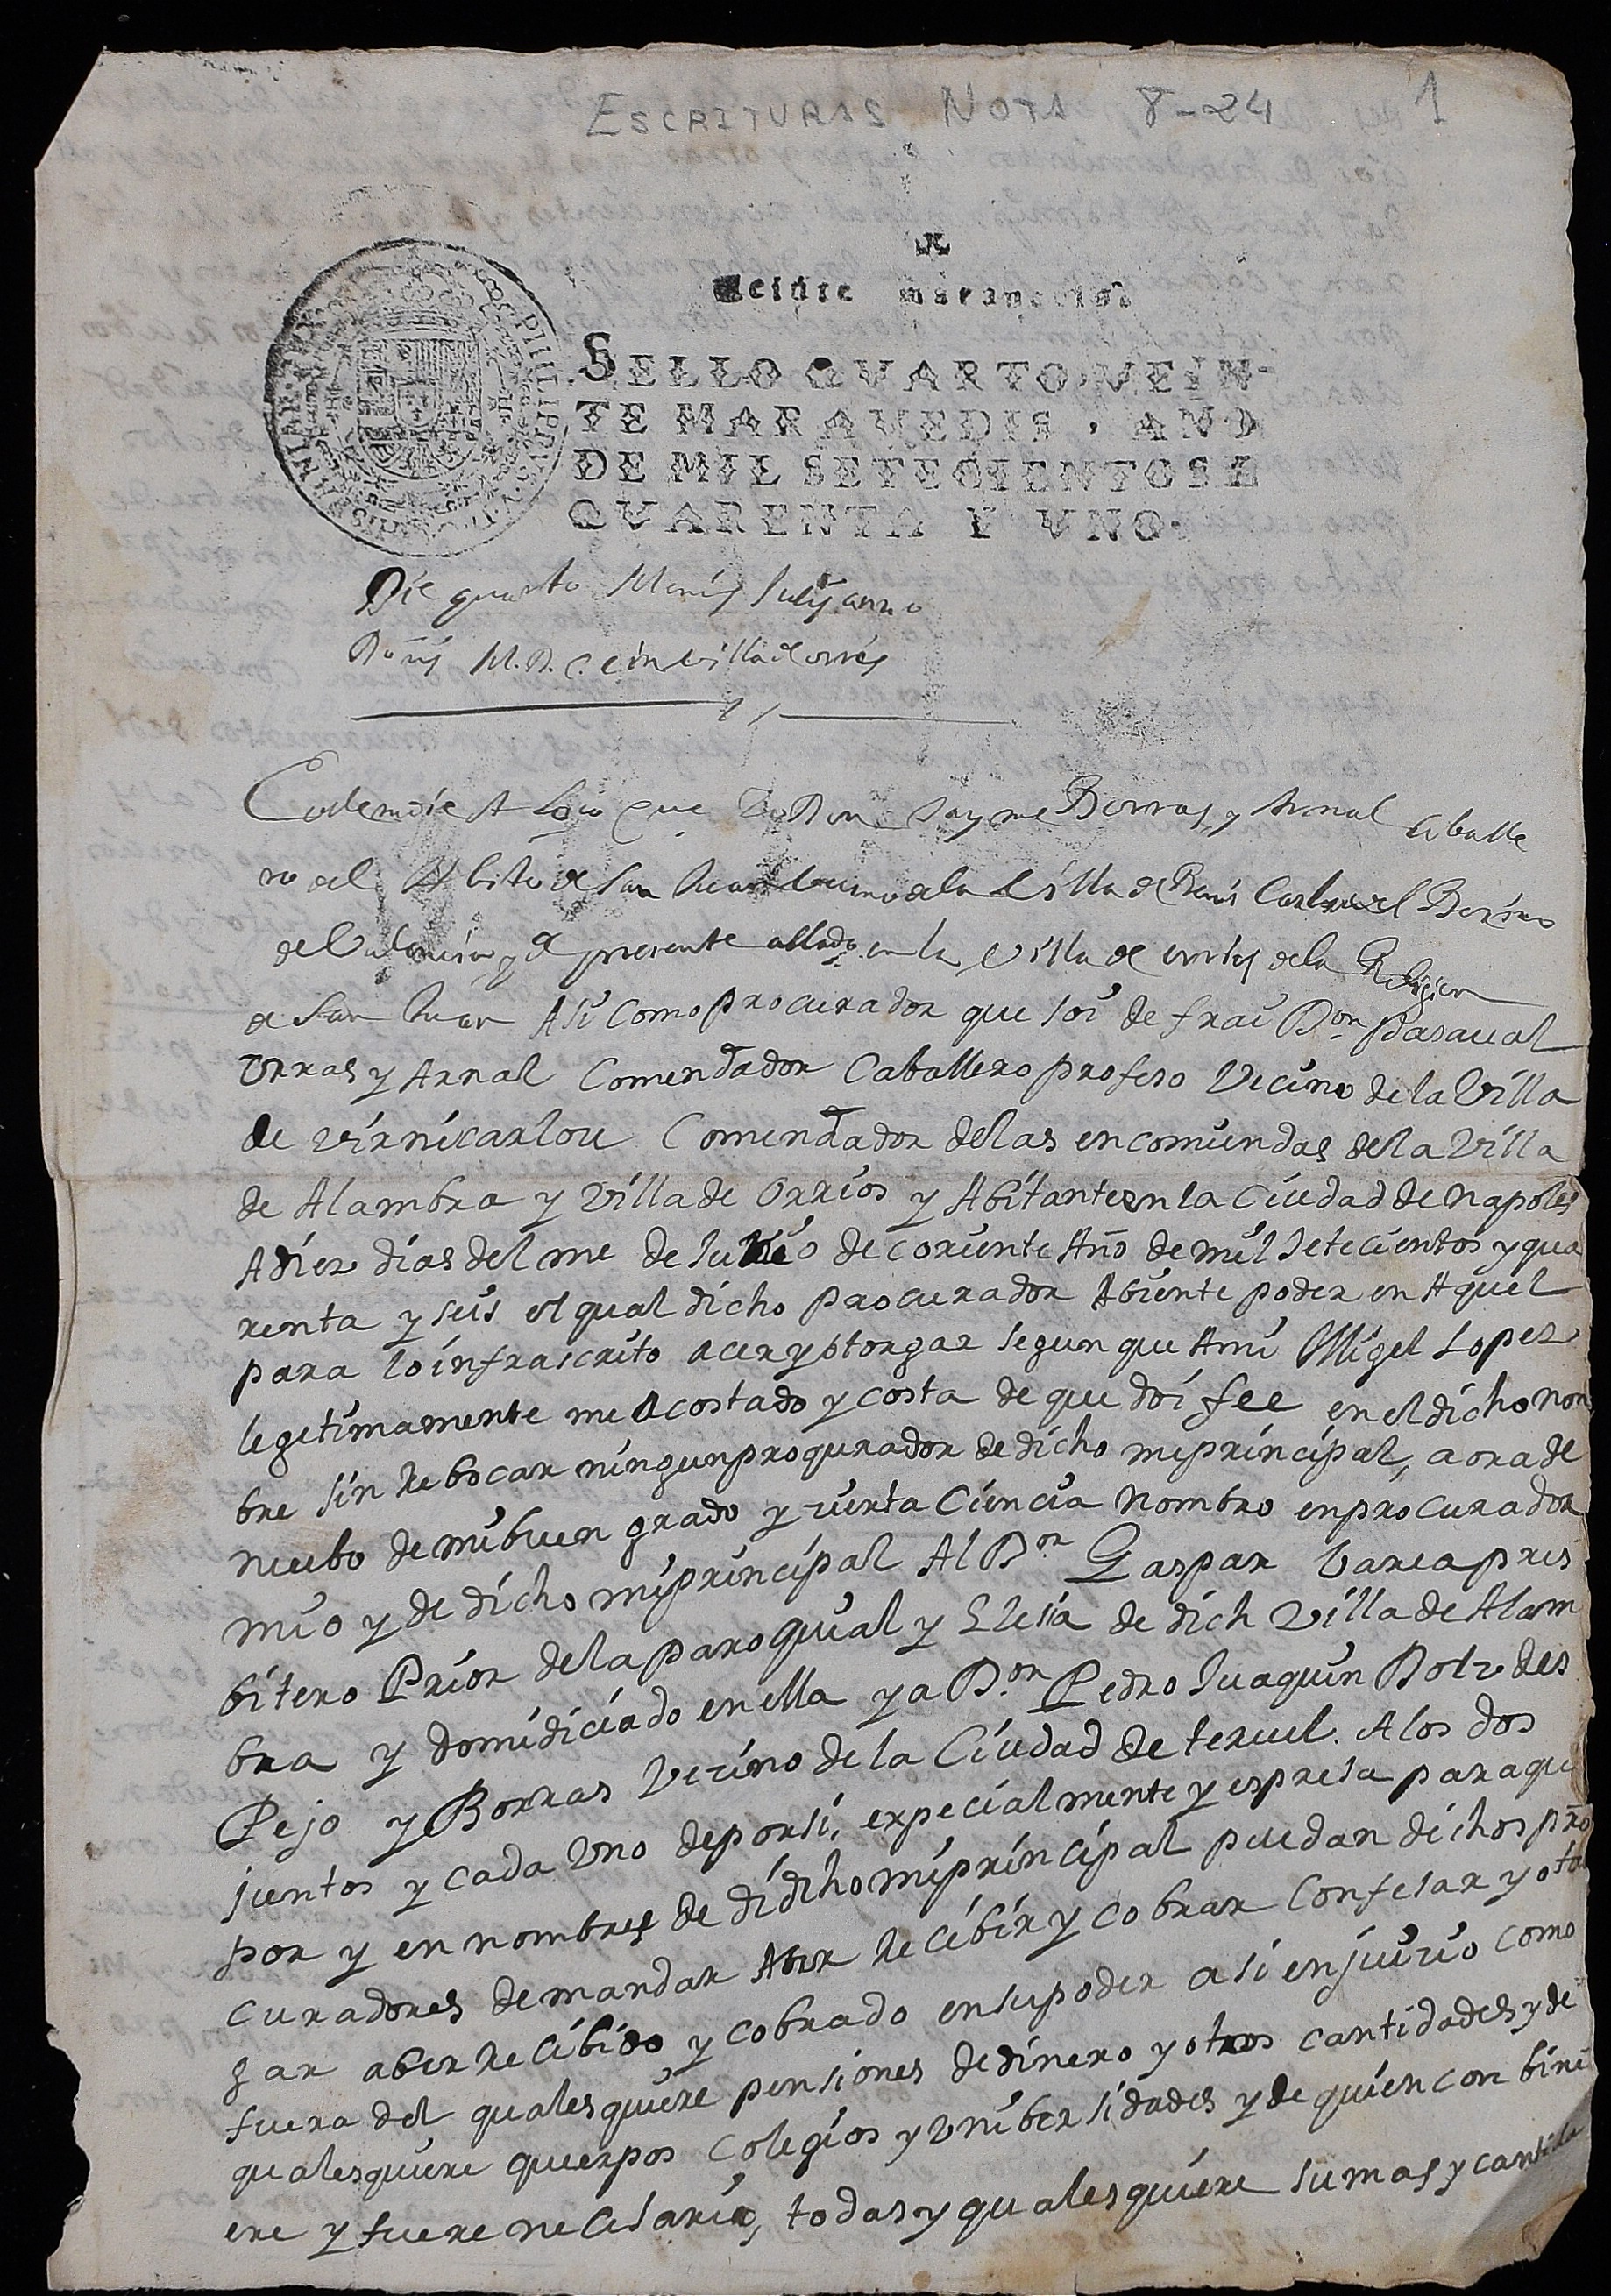 ESCRITURAS NOTA 8-24 1
SELLO QVARTO, VEIN-
TE MARAVEDIS, AÑO
DE MIL SETECIENTOS E
QVARENTA Y VNO.
Die quarto Julij anno
M.D.C.
Eodem die Don Jayme Borras y Arnal Caballe
ro del Abito de San Juan de la Villa de
y presente allado en la Villa de de la Religion
de San Juan Asi como procurador que soi de frai Don Pasqual
orras y Arnal Comendador Caballero profeso Vecino de la Villa
de virnicarlou Comendador de las encomiendas de la Villa
de Alambra y Villa de Orrios y Abitante en la Ciudad de napoles
A diez dias del me de de coriente Año de mil setecientos y qua
renta y seis el qual dicho procurador Abiente poder en Aquel
para lo infrascrito acer y otorgar segun que Ami Migel Lopez
legitimamente me a costado y costa de que doi fee en el dicho non
bre sin rebocar ningun procurador de dicho mi principal, aora de
nuebo de mi buen grado y zierta Ciencia Nombro en procurador
mio y de dicho mi principal Al Dor Gaspar Varea pres
bitero Prior de la paroquial y Elesia de dich Villa de Alam
bra y domidiciado en ella y a Don Pedro Juaquin Dolz des
Pejo y Borras Vezino de la Ciudad de teruel. A los dos
juntos y cada Uno de por si, expecialmente y espresa para que
por y en nombres de didicho mi principal puedan dichos pro
curadores demandar Aber recibir y cobrar Confesar y otor
gar aber recibido y cobrado en su poder asi en juizio como
fuera del qualesquiere pensiones de dinero y otros cantidades y de
qualesquiere querpos Colegios y Unibersidades y de quien con bini
ere y fuere necesario, todas y qualesquiere sumas y cantida